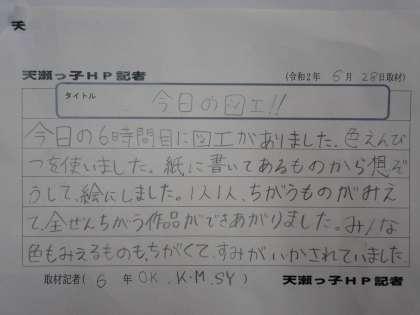 天
天瀬っ子HP記者 (令和2年 5月 28日取材)
タイトル
今日の図工!!
今日の6時間目に図工がありました。色えんぴ
つを使いました。紙に書いてあるものから想ぞ
うして、絵にしました。1人1人、ちがうものがみえ
て、全ぜんちがう作品ができあがりました。み/な
色もみえるものも、ちがくて、すみがいかされていました
取材記者( 6 年 OK.K・M.SY ) 天瀬っ子HP記者